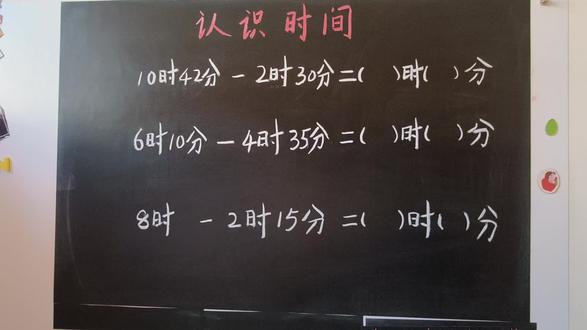 认识时间
10时42分-2时30分=( )时( )分
6时10分-4时35分=( )时( )分
8时 -2时15分=( )时( )分